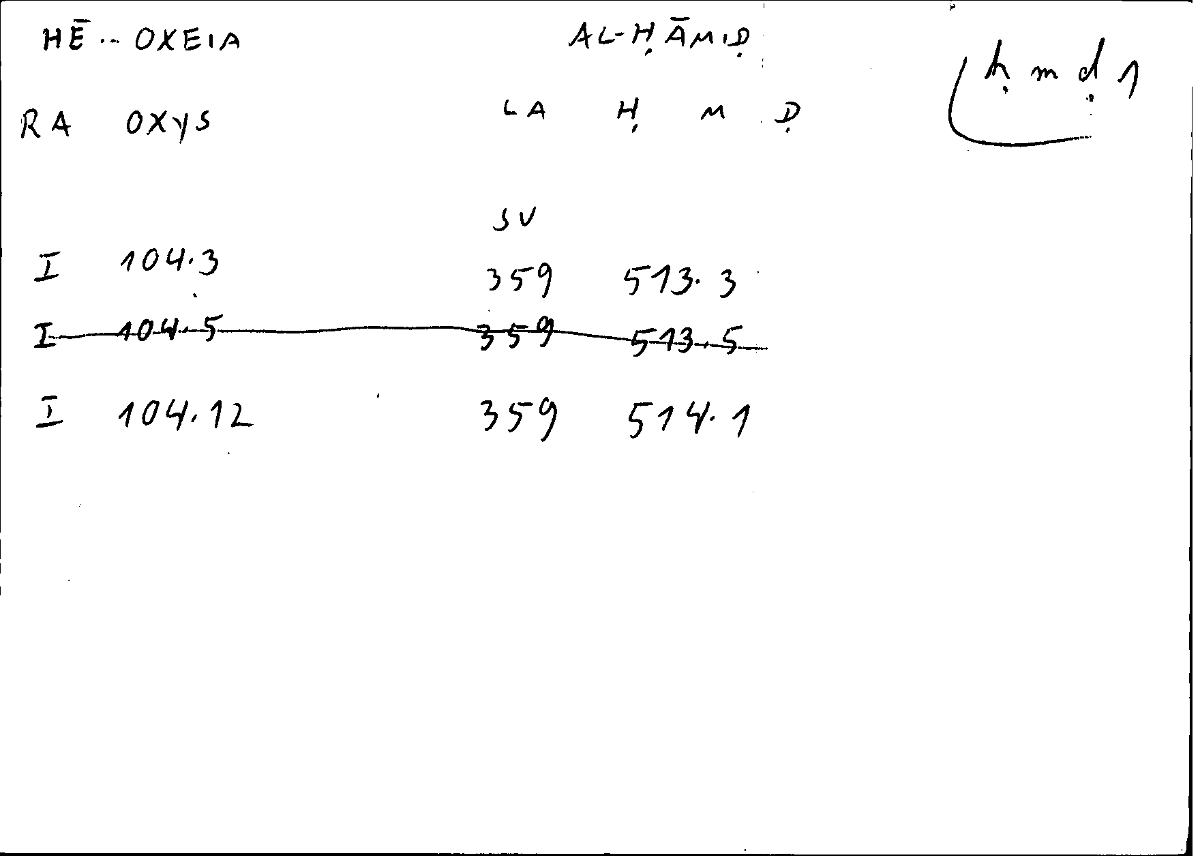 HĒ .. OXEIA AL-ḤĀMIḌ
ḥmḍ1
RA OXYS LA Ḥ M Ḍ
SU
I 104.3 359 513.3
I 104.5 359 513.5
I 104.12 359 514.1